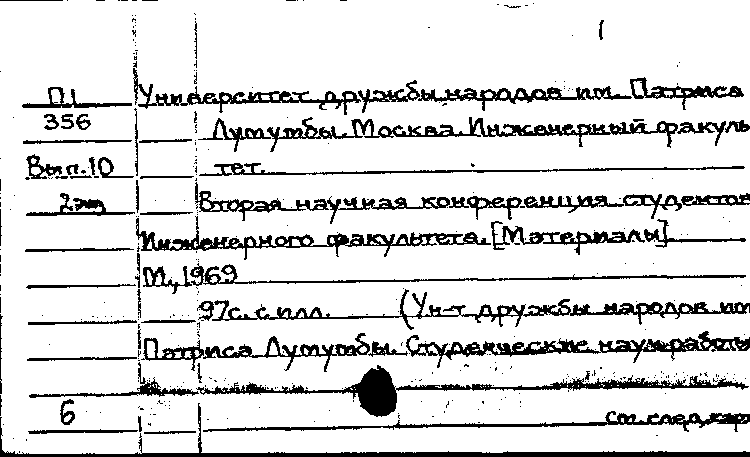 1
П1 Университет дружбы народов им. Патриса
356 Лумумбы. Москва. Инженерный факуль
Вып.10 тет.
2экз Вторая научная конференция студентов
Инженерного факультета. [Материалы]
М., 1969
97с. с илл. (Ун-т дружбы народов им
Патриса Лумумбы. Студенческие науч. работы
6 см. след. карт